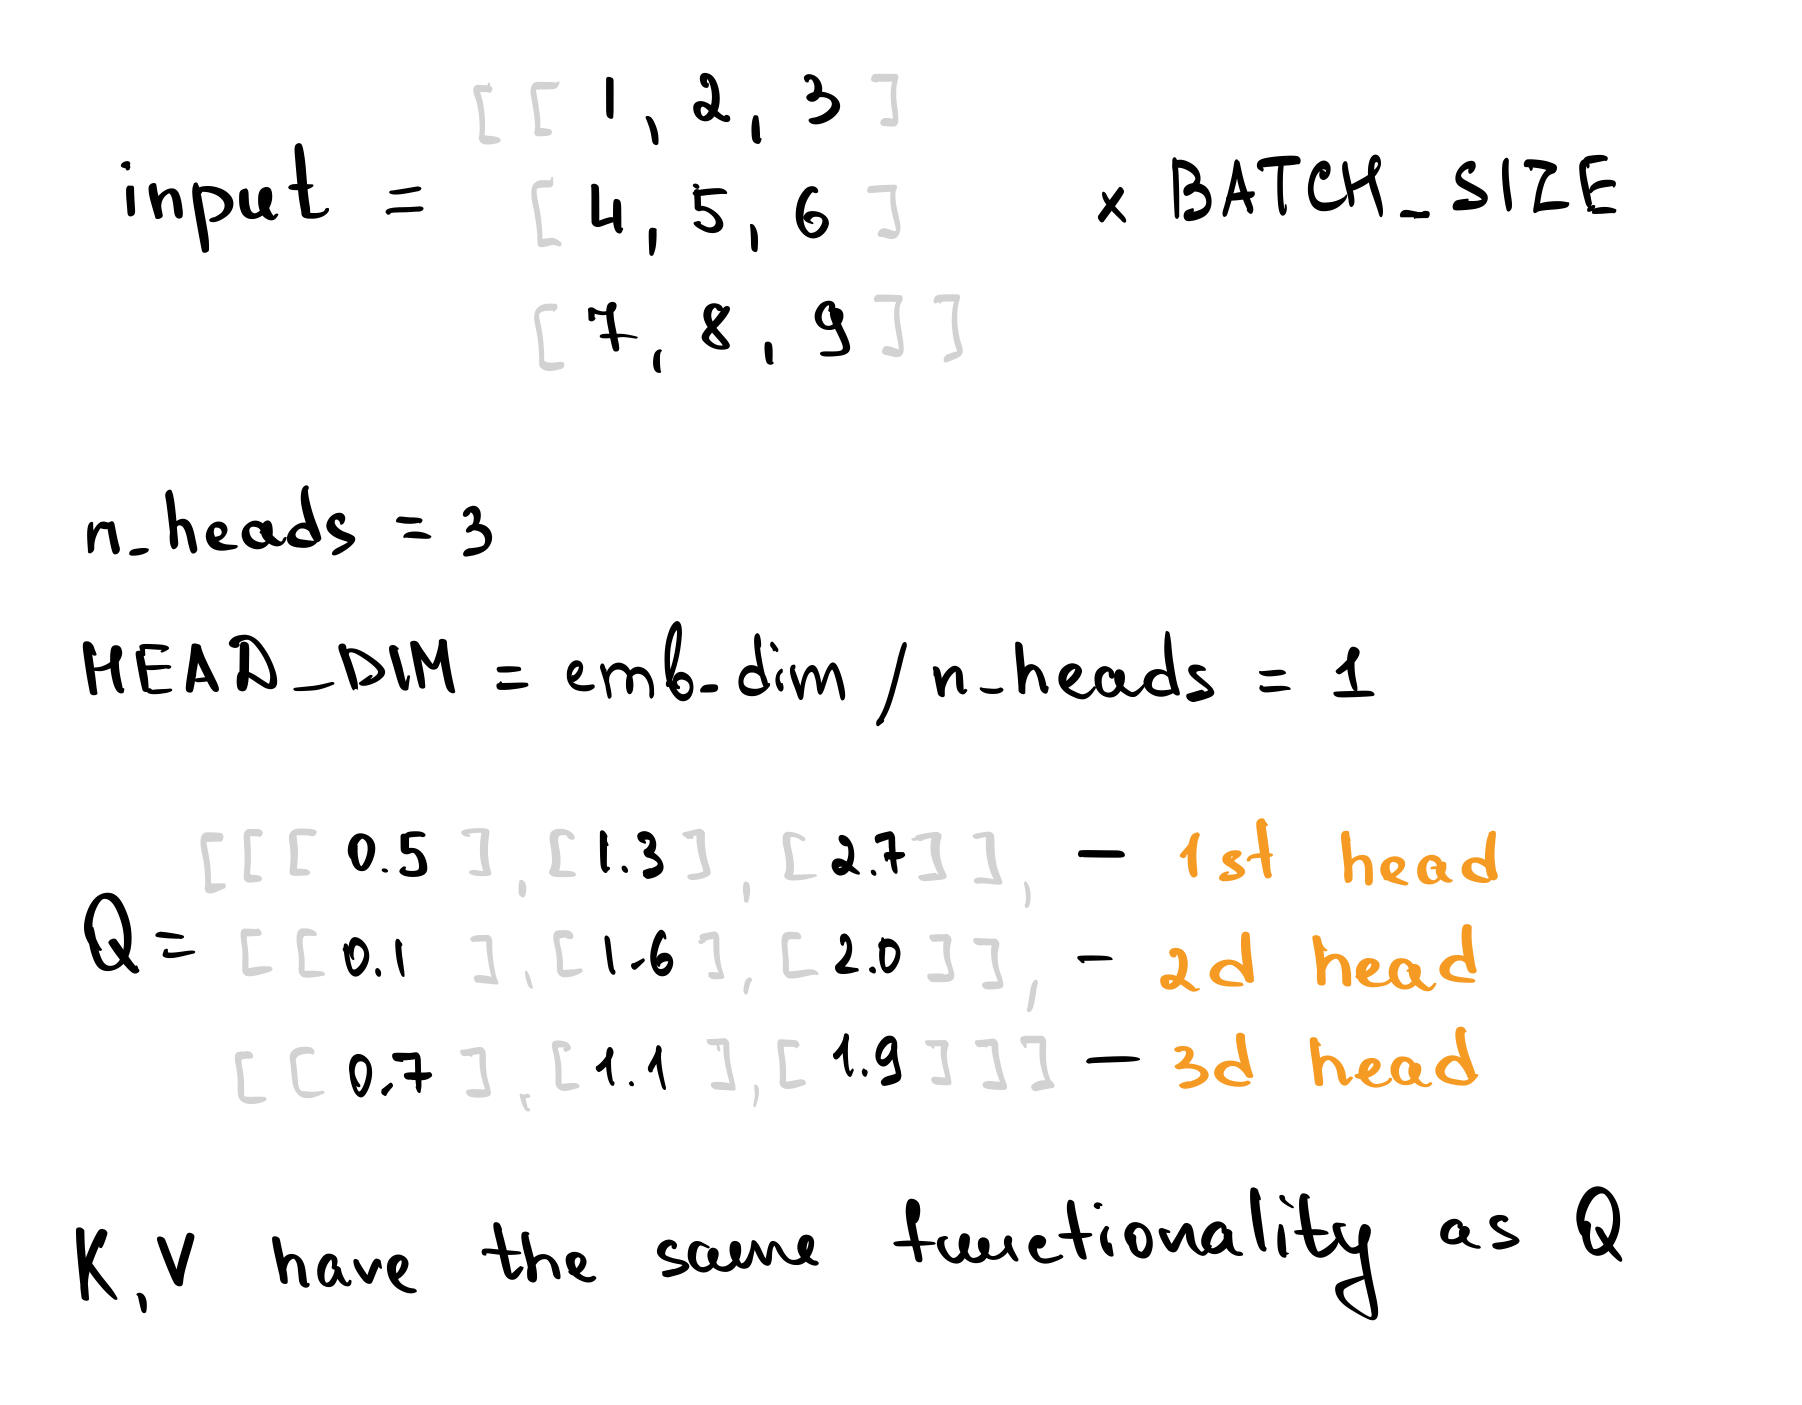 [[1, 2, 3]
input = [4, 5, 6] x BATCH_SIZE
[7, 8, 9]]
n_heads = 3
HEAD_DIM = emb_dim / n_heads = 1
[[[0.5], [1.3], [2.7]], - 1st head
Q = [[0.1], [1.6], [2.0]], - 2d head
[[0.7], [1.1], [1.9]]] - 3d head
K, V have the same functionality as Q